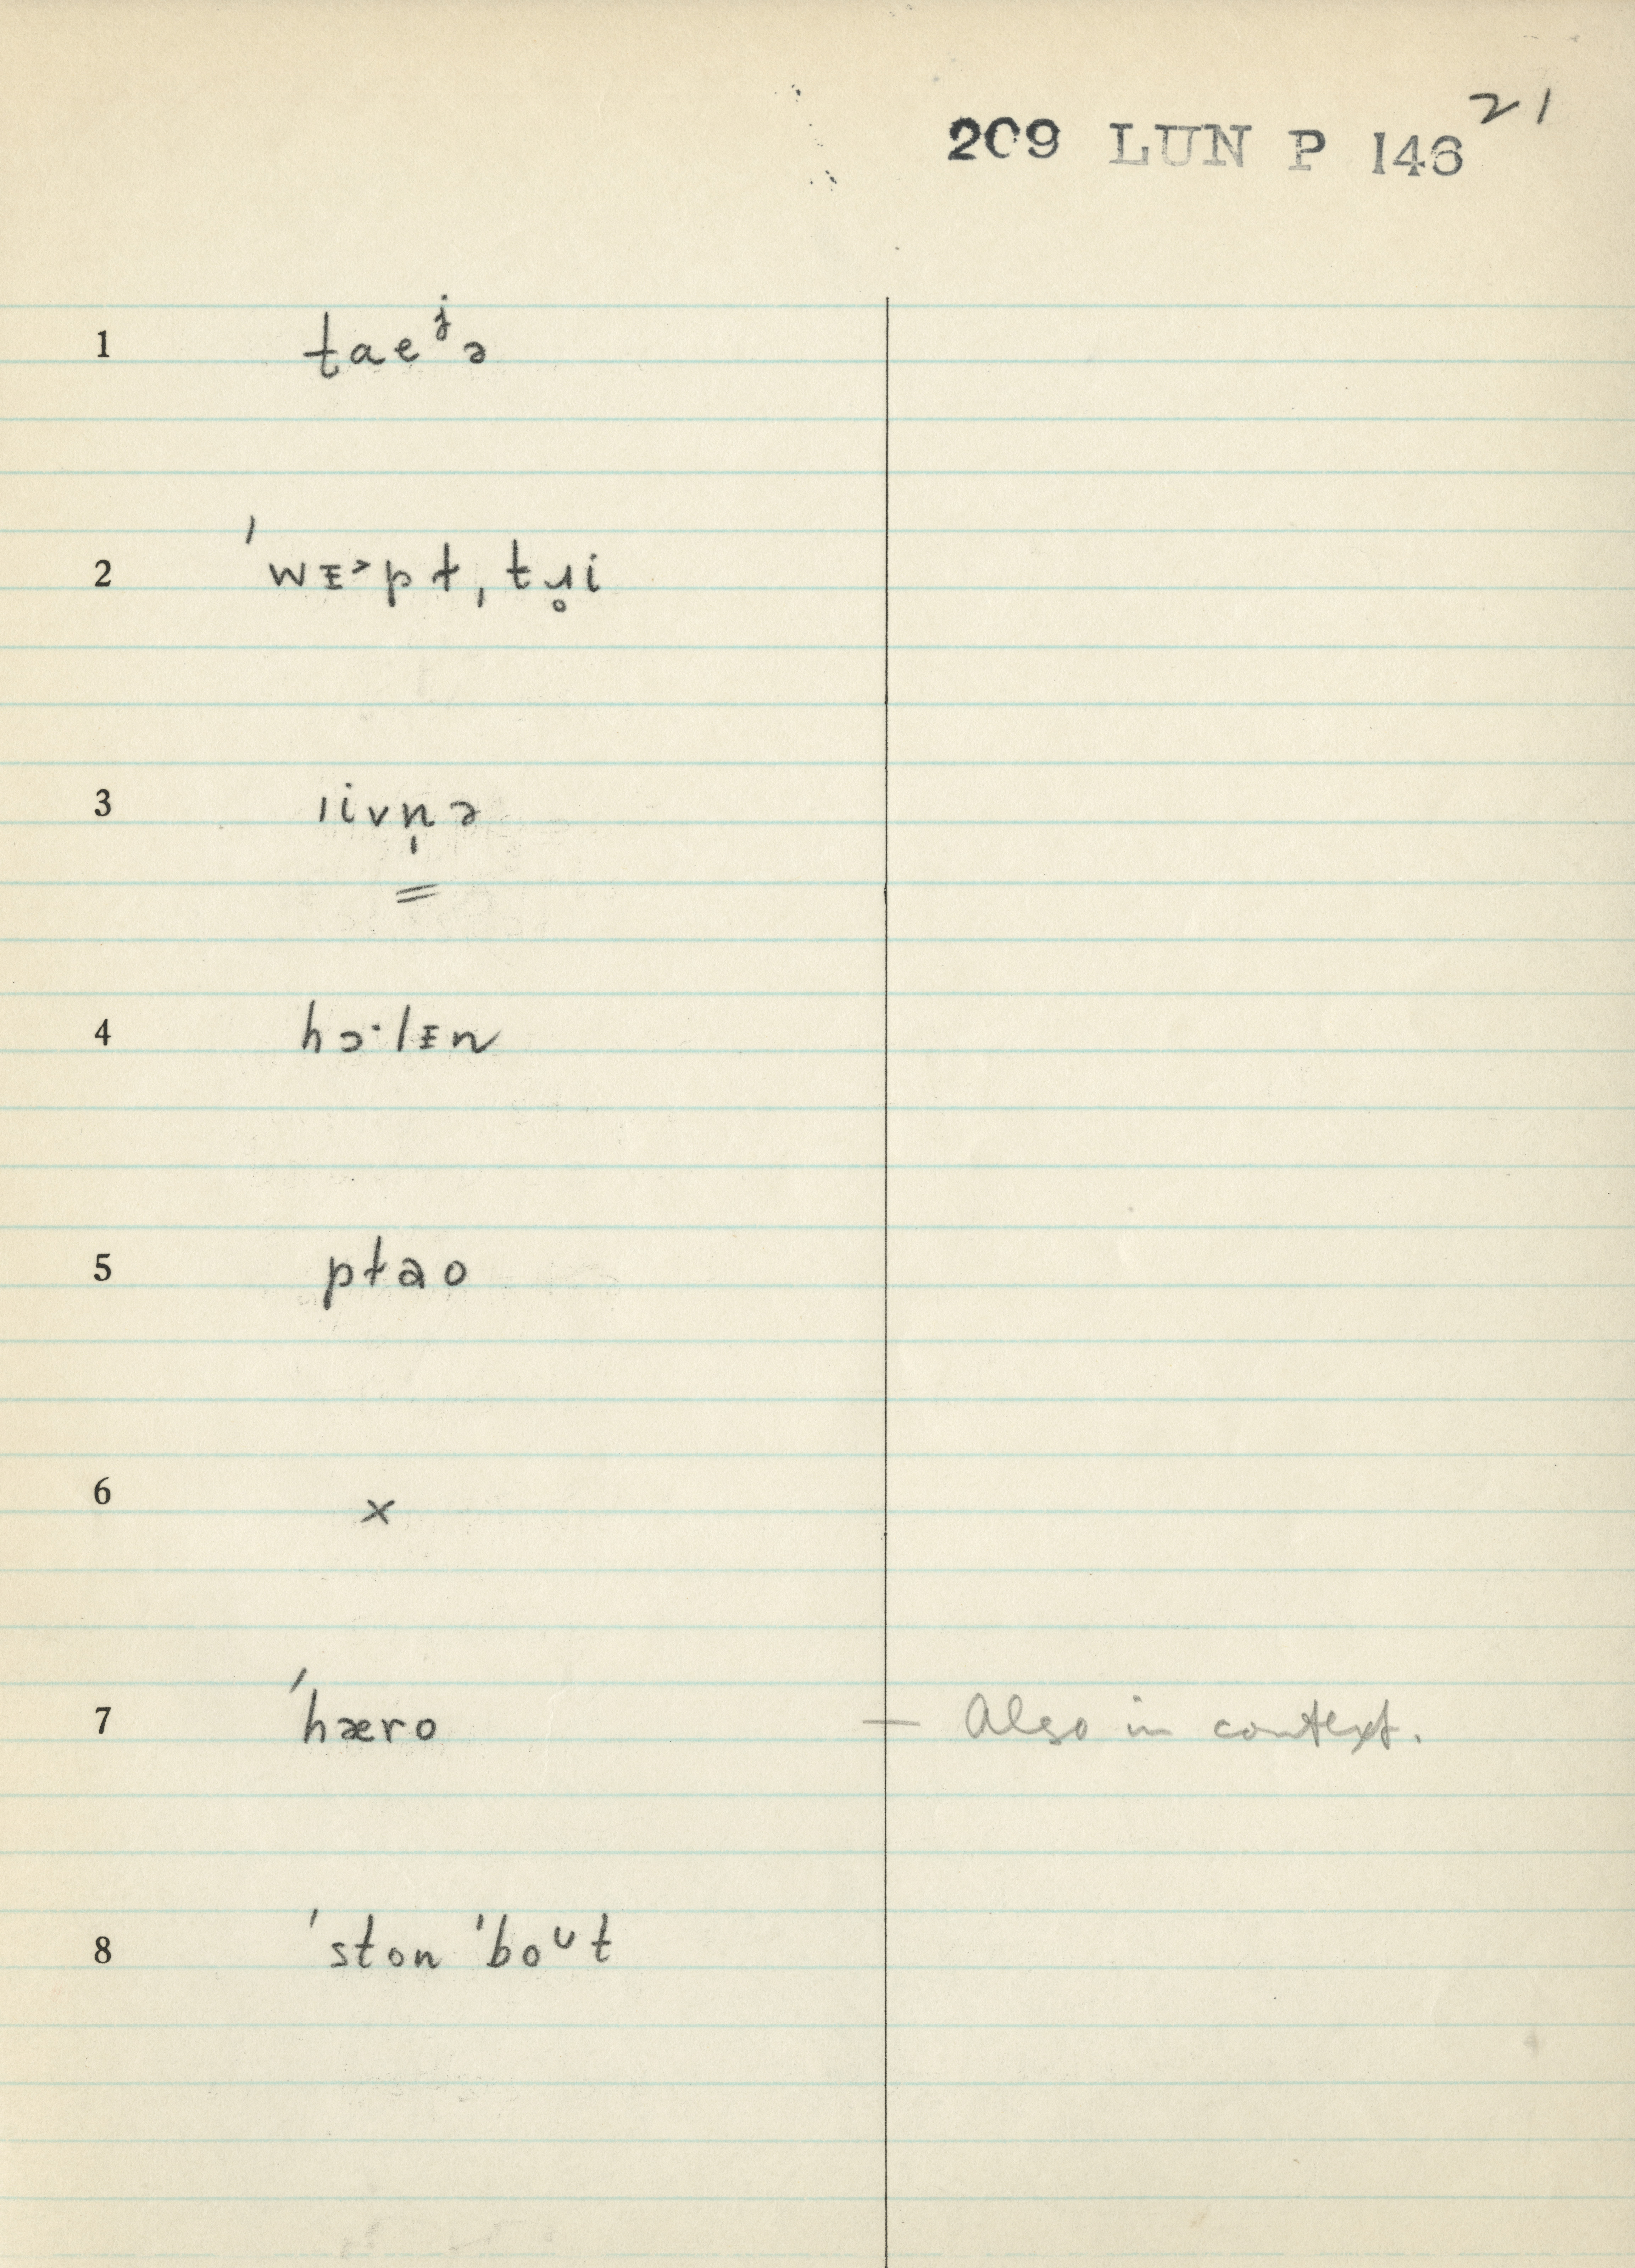 209 LUN P 146 21
1 taeʲə
2 ˈwᴇ˃pt,tɹ̥i
3 ıivn̩ə
=
4 hɔ·lᴇn
5 ptao
6 ×
7 ˈhæro — Also in context.
8 ˈston ˈboᶸt